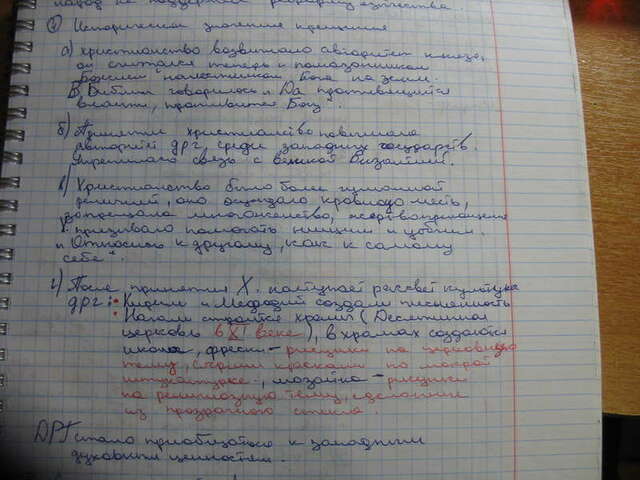 народ не поддержал реформу язычества.
Историческое значение крещения
а) христианство возвышало авторитет князя,
он считался теперь "помазанником
Божьим" наместником Бога на земле.
В Библии говорилось "Да противящийся
власти, противится Богу".
б) Принятие христианства повышало
авторитет ДРГ, среди западных государств.
Укрепило связь с великой Византией.
в) Христианство было более гуманной
религией, оно осуждало кровную месть,
запрещала многоженство, жертвоприношение
призывало помогать нищим и убогим.
и "Относись к другому, как к самому
себе".
г) После принятия Х. наступает рассвет культуры
ДРГ: • Кирилл и Мефодий создали письменность
• Начали строится храмы (Десятинная
церковь в XI веке), в храмах создаются
иконы, фрески - рисунки на церковную
тему, сырыми красками по мокрой
штукатурке, мозайка - рисунки
на религиозную тему, сделанные
из прозрачного стекла.
ДРГ стало приобщаться к западным
духовным ценностям.